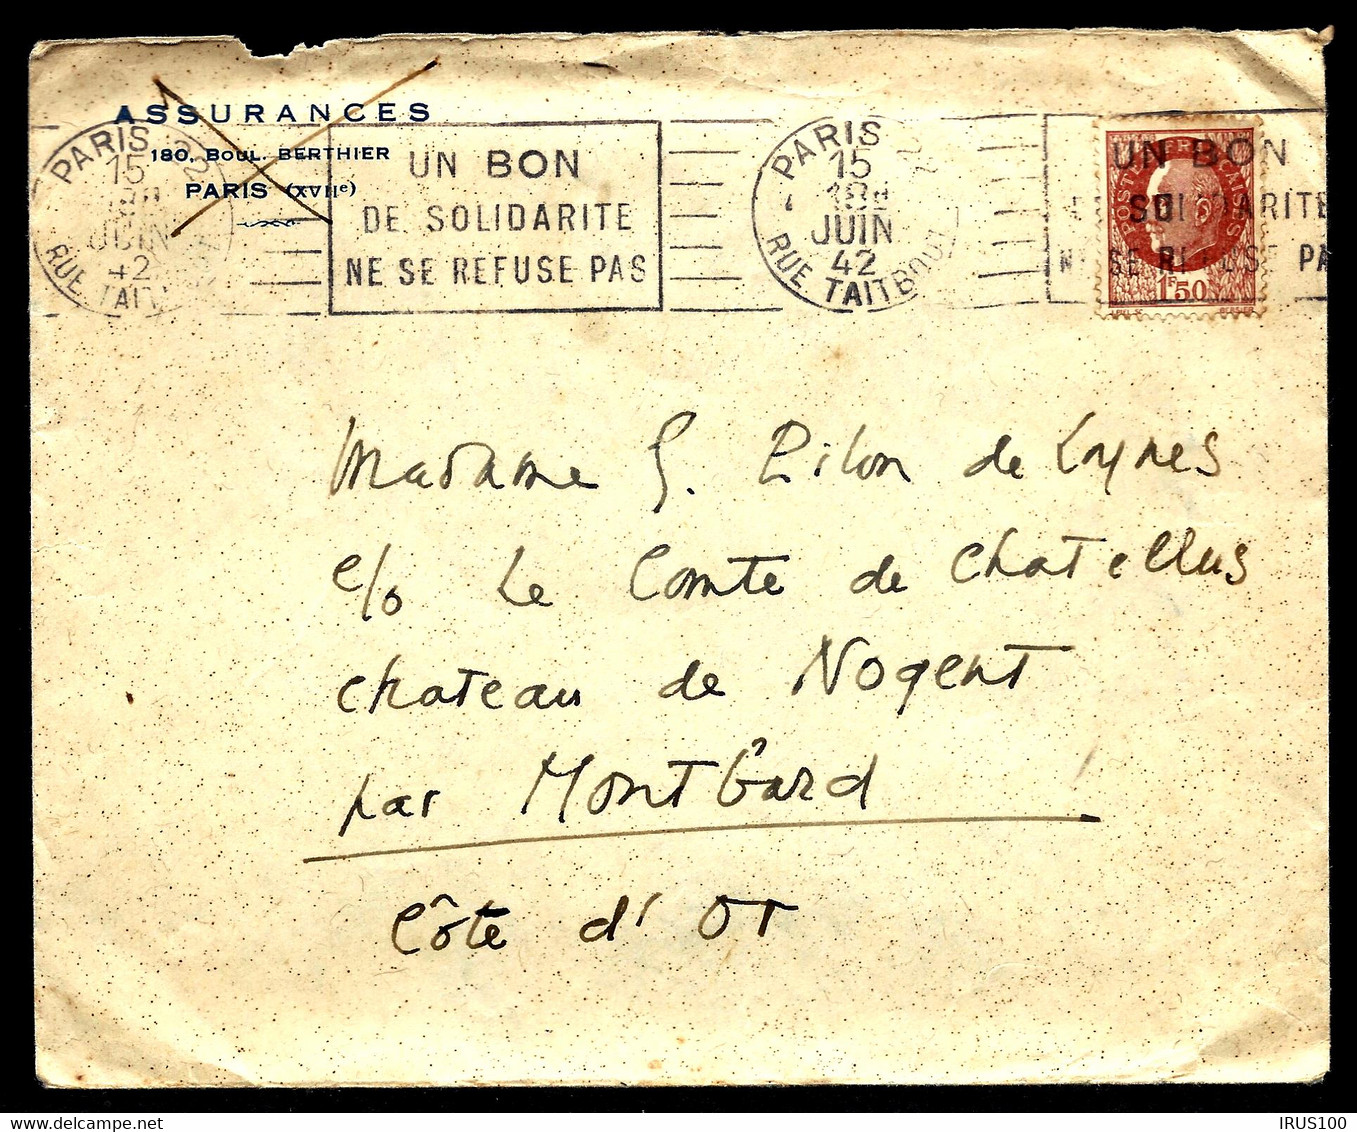 ASSURANCES
180, BOUL. BERTHIER
PARIS (XVIIe)
PARIS 22
15
JUIN
42
RUE TAIT
UN BON
DE SOLIDARITE
NE SE REFUSE PAS
PARIS 22
15
18H
JUIN
42
RUE TAITBOUT
UN BON
SOLIDARITE
SE REFUSE PA
POSTES FRANÇAISES
1F50
Madame G. Pilon de Loynes
c/o Le Comte de Chatellus
Chateau de Nogent
par MontBard
Côte d'Or
IRUS100